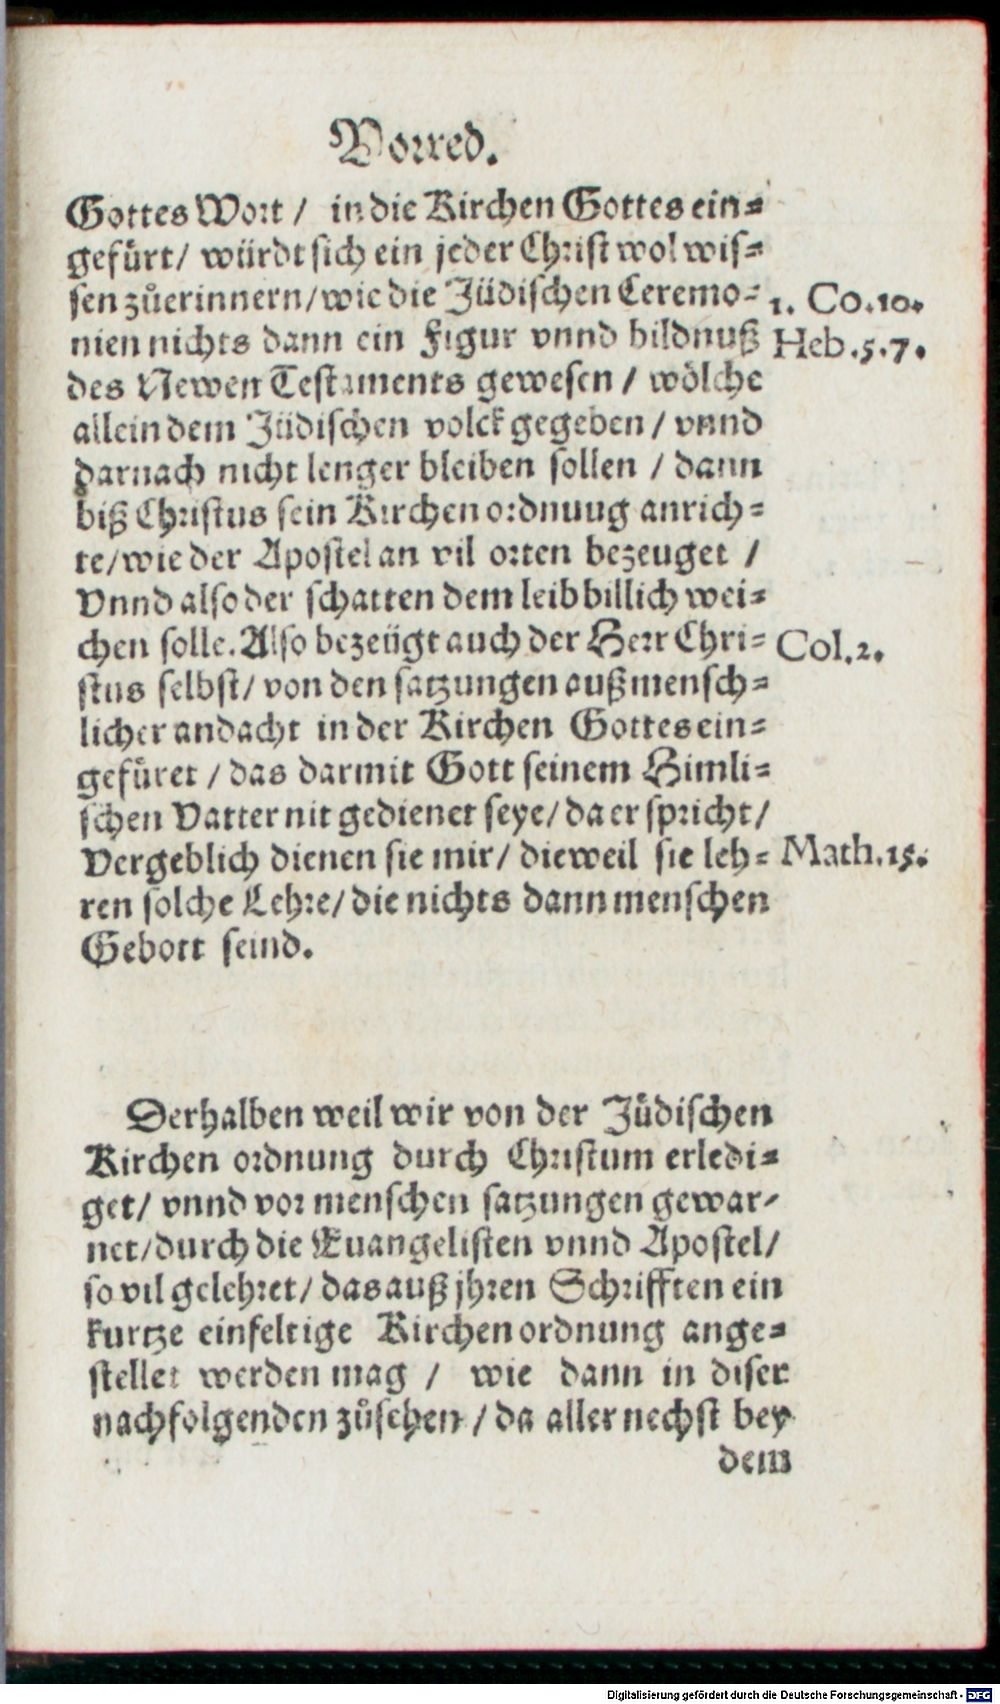 Vorred.
Gottes Wort / in die Kirchen Gottes ein⸗
gefuͤrt/ würdt sich ein jeder Christ wol wis⸗
sen zůerinnern/wie die Jüdischen Ceremo⸗ 1. Co.10.
nien nichts dann ein Figur vnnd bildnuß Heb.5.7.
des Newen Testaments gewesen / woͤlche
allein dem Jüdischen volck gegeben / vnnd
darnach nicht lenger bleiben sollen / dann
biß Christus sein Kirchen ordnuug anrich⸗
te/wie der Apostel an vil orten bezeuget /
Vnnd also der schatten dem leib billich wei⸗
chen solle. Also bezeügt auch der Herr Chri⸗ Col.2.
stus selbst/ von den satzungen auß mensch⸗
licher andacht in der Kirchen Gottes ein⸗
gefuͤret / das darmit Gott seinem Himli⸗
schen Vatter nit gedienet seye/ da er spricht/
Vergeblich dienen sie mir/ dieweil sie leh⸗ Math.15.
ren solche Lehre/ die nichts dann menschen
Gebott seind.
Derhalben weil wir von der Juͤdischen
Kirchen ordnung durch Christum erledi⸗
get/ vnnd vor menschen satzungen gewar⸗
net/durch die Euangelisten vnnd Apostel/
so vil gelehret/ das auß jhren Schrifften ein
kurtze einfeltige Kirchen ordnung ange⸗
stellet werden mag / wie dann in diser
nachfolgenden zůsehen / da aller nechst bey
dem
Digitalisierung gefördert durch die Deutsche Forschungsgemeinschaft - DFG